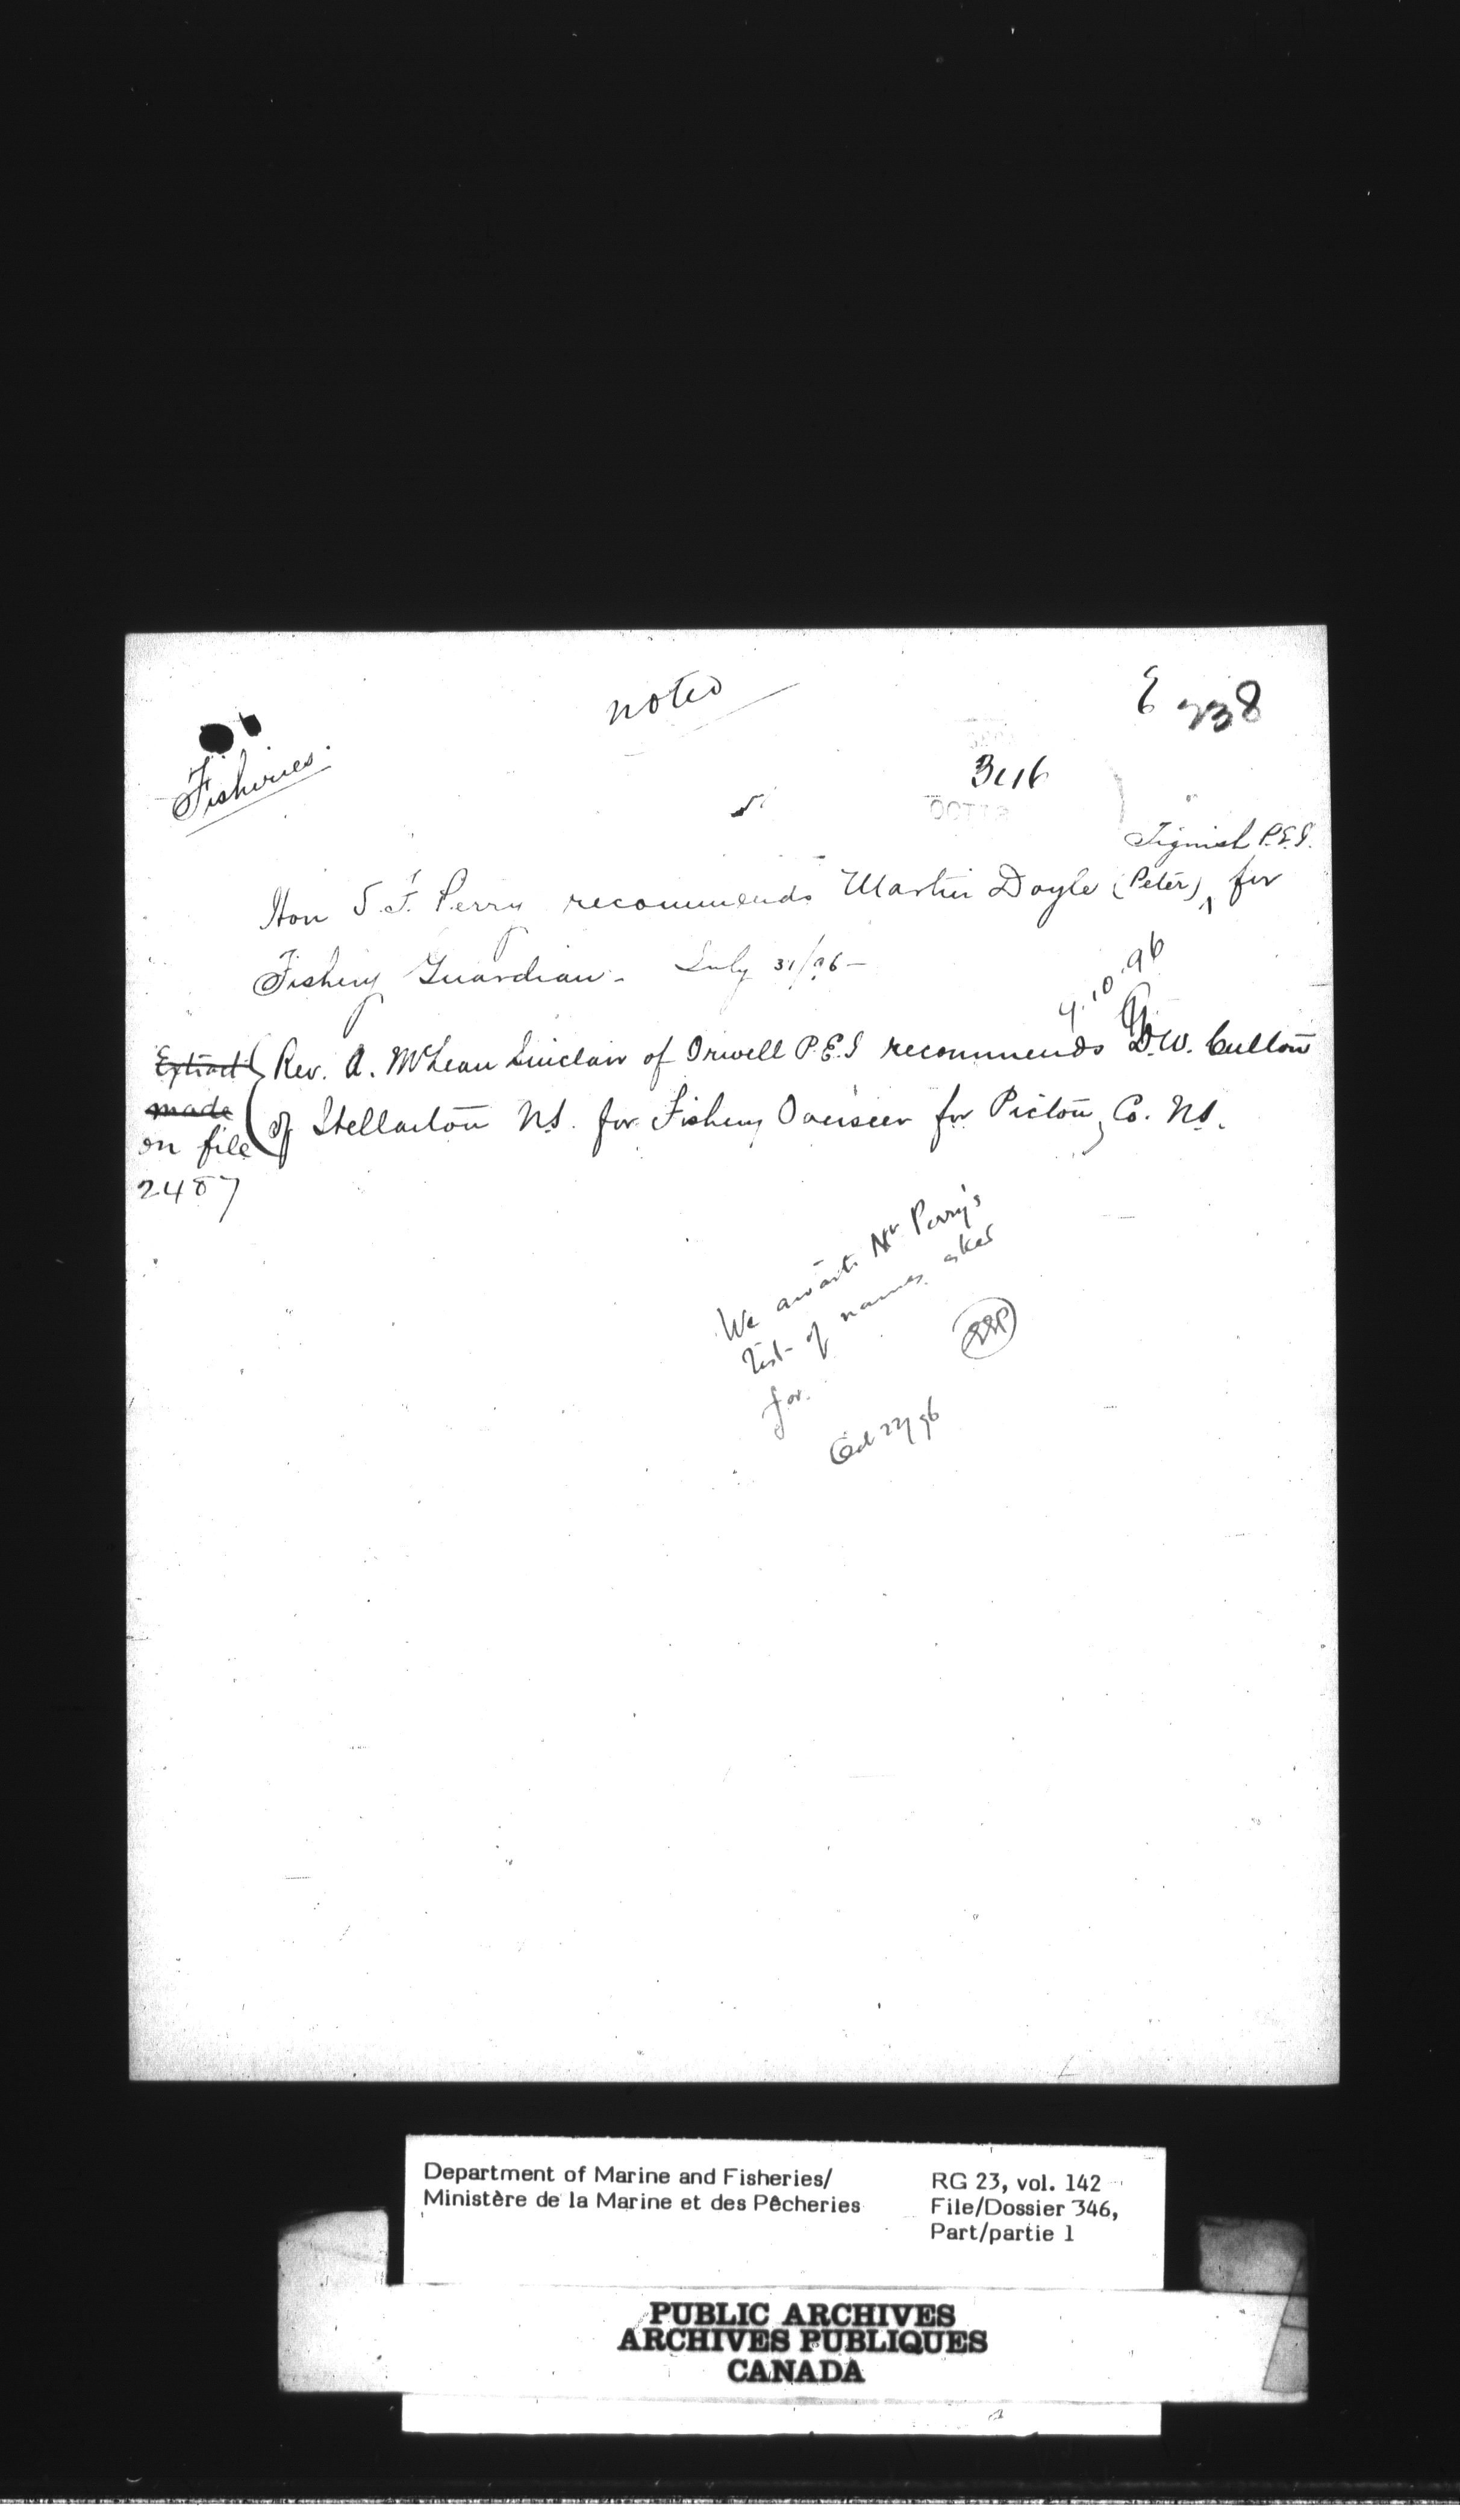 noted
E 238
Fisheries.
3416
Tignish P.E.I.
Hon S. F. Perry recommends Martin Doyle (Peter) ^ for
Fishery Guardian - July 31/96 -
4.10.96
Extract made on file 2487
Rev. A. McLean Sinclair of Orwell P.E.I recommends D.W. Cullton
of Stellarton N.S. for Fishery Overseer for Pictou Co. N.S.
We await Mr Perry's
list of names asked
for.
Oct 27/96
Department of Marine and Fisheries/
Ministère de la Marine et des Pêcheries
RG 23, vol. 142
File/Dossier 346,
Part/partie 1
PUBLIC ARCHIVES
ARCHIVES PUBLIQUES
CANADA